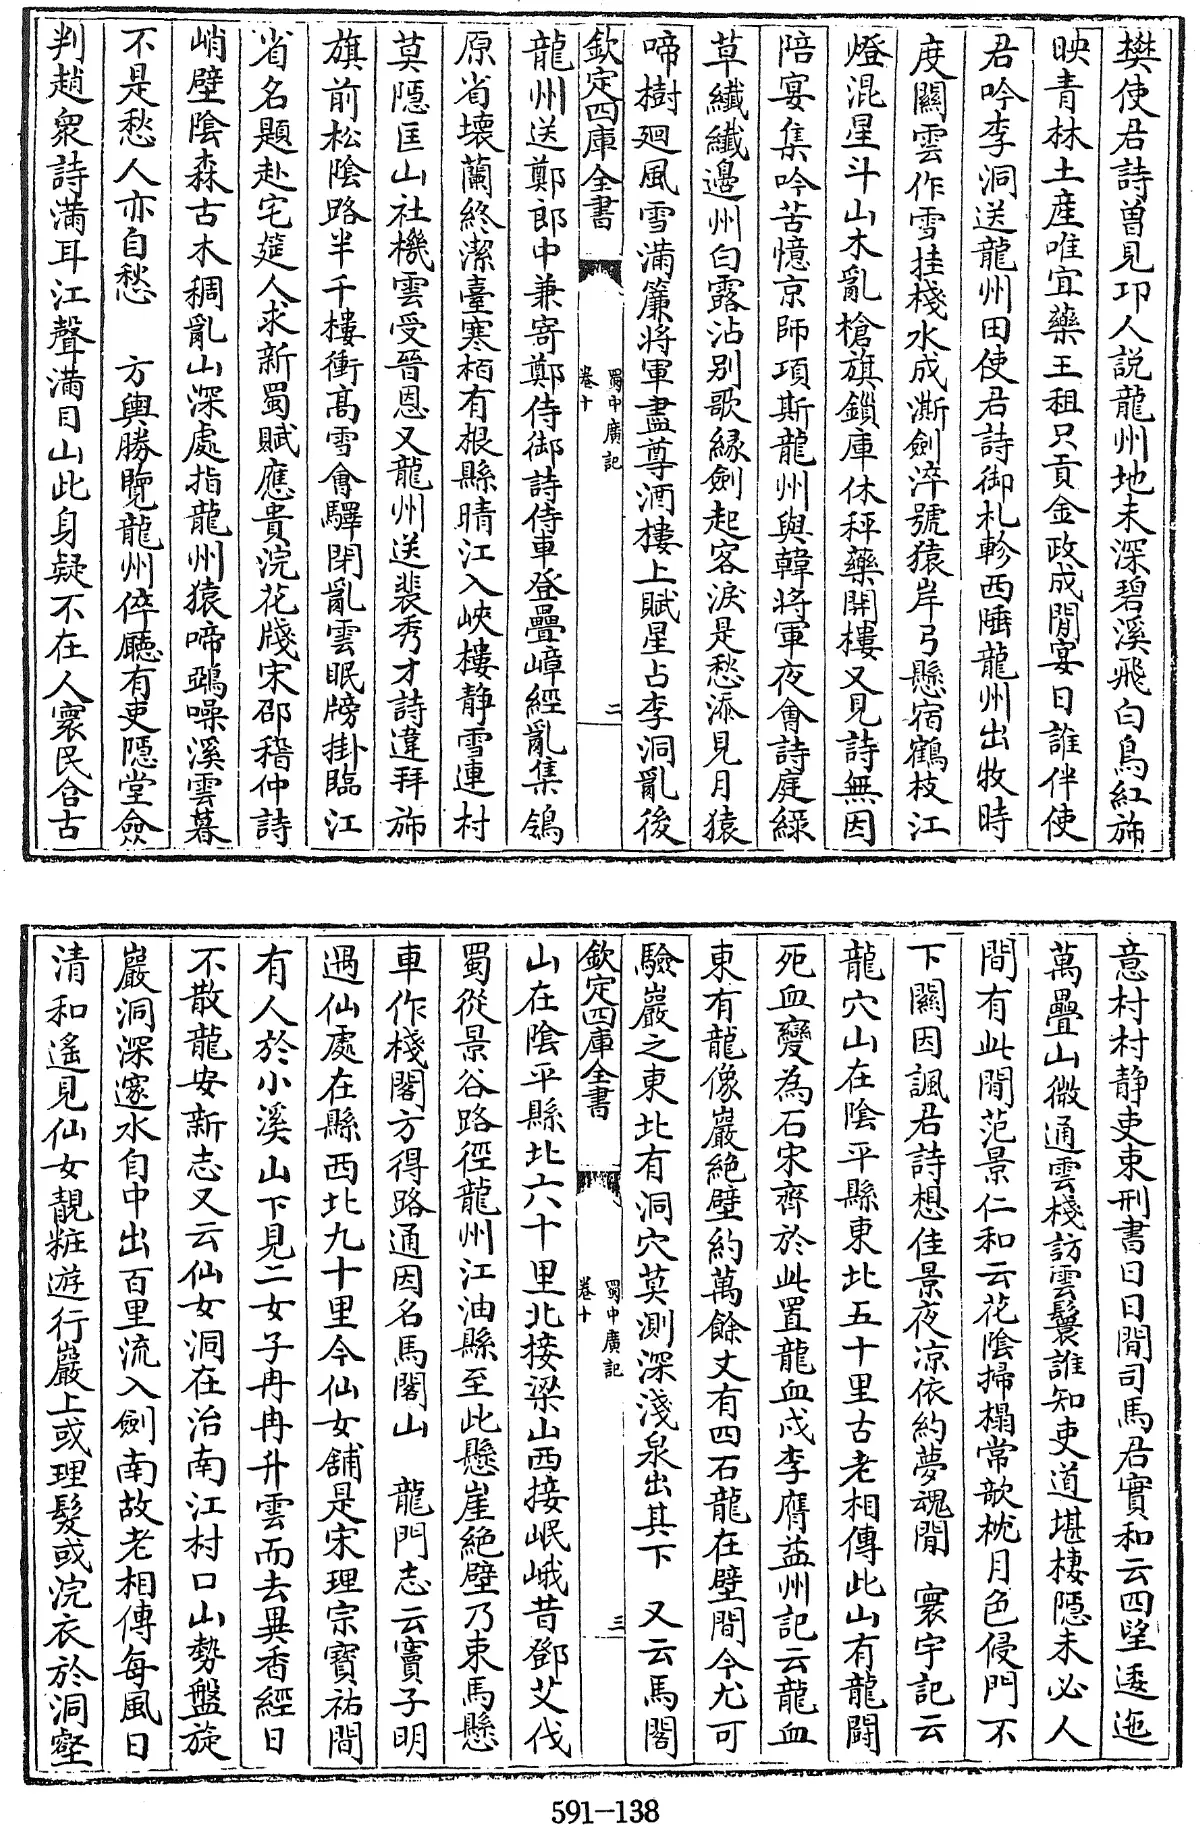 樊使君詩曾見邛人説龍州地未深碧溪飛白鳥紅斾
映青林土産唯宜藥王租只貢金政成閒宴日誰伴使
君吟李洞送龍州田使君詩御札軫西陲龍州出牧時
度關雲作雪挂棧水成澌劍淬號猿岸弓懸宿鶴枝江
燈混星斗山木亂槍旗鎖庫休秤藥開樓又見詩無因
陪宴集吟苦憶京師項斯龍州與韓將軍夜會詩庭緑
草纖纖邊州白露沾别歌縁劍起客淚是愁添見月猿
啼樹迴風雪滿簾將軍盡尊酒樓上賦星占李洞亂後
欽定四庫全書
蜀中廣記
卷十
二
龍州送鄭郎中兼寄鄭侍御詩侍車登疊嶂經亂集鴒
原省壞蘭終潔臺寒栢有根縣晴江入峽樓静雪連村
莫隱匡山社機雲受晉恩又龍州送裴秀才詩違拜斾
旗前松陰路半千樓衝高雪會驛閉亂雲眠牓掛臨江
省名題赴宅筵人求新蜀賦應貴浣花牋宋邵稽仲詩
峭壁陰森古木稠亂山深處指龍州猿啼鵶噪溪雲暮
不是愁人亦自愁　方輿勝覽龍州倅廳有吏隱堂僉
判趙衆詩滿耳江聲滿目山此身疑不在人寰民含古
意村村静吏束刑書日日閒司馬君實和云四望逶迤
萬疊山微通雲棧訪雲鬟誰知吏道堪棲隱未必人
間有此閒范景仁和云花陰掃榻常欹枕月色侵門不
下關因諷君詩想佳景夜凉依約夢魂閒　寰宇記云
龍穴山在陰平縣東北五十里古老相傳此山有龍鬪
死血變為石宋齊於此置龍血戍李膺益州記云龍血
東有龍像巖絶壁約萬餘丈有四石龍在壁間今尤可
驗巖之東北有洞穴莫測深淺泉出其下　又云馬閣
欽定四庫全書
蜀中廣記
卷十
三
山在陰平縣北六十里北接梁山西接岷峨昔鄧艾伐
蜀從景谷路徑龍州江油縣至此懸崖絶壁乃束馬懸
車作棧閣方得路通因名馬閣山　龍門志云竇子明
遇仙處在縣西北九十里今仙女舖是宋理宗寶祐間
有人於小溪山下見二女子冉冉升雲而去異香經日
不散龍安新志又云仙女洞在治南江村口山勢盤旋
巖洞深邃水自中出百里流入劍南故老相傳每風日
清和遙見仙女靚粧遊行巖上或理髮或浣衣於洞壑
591—138